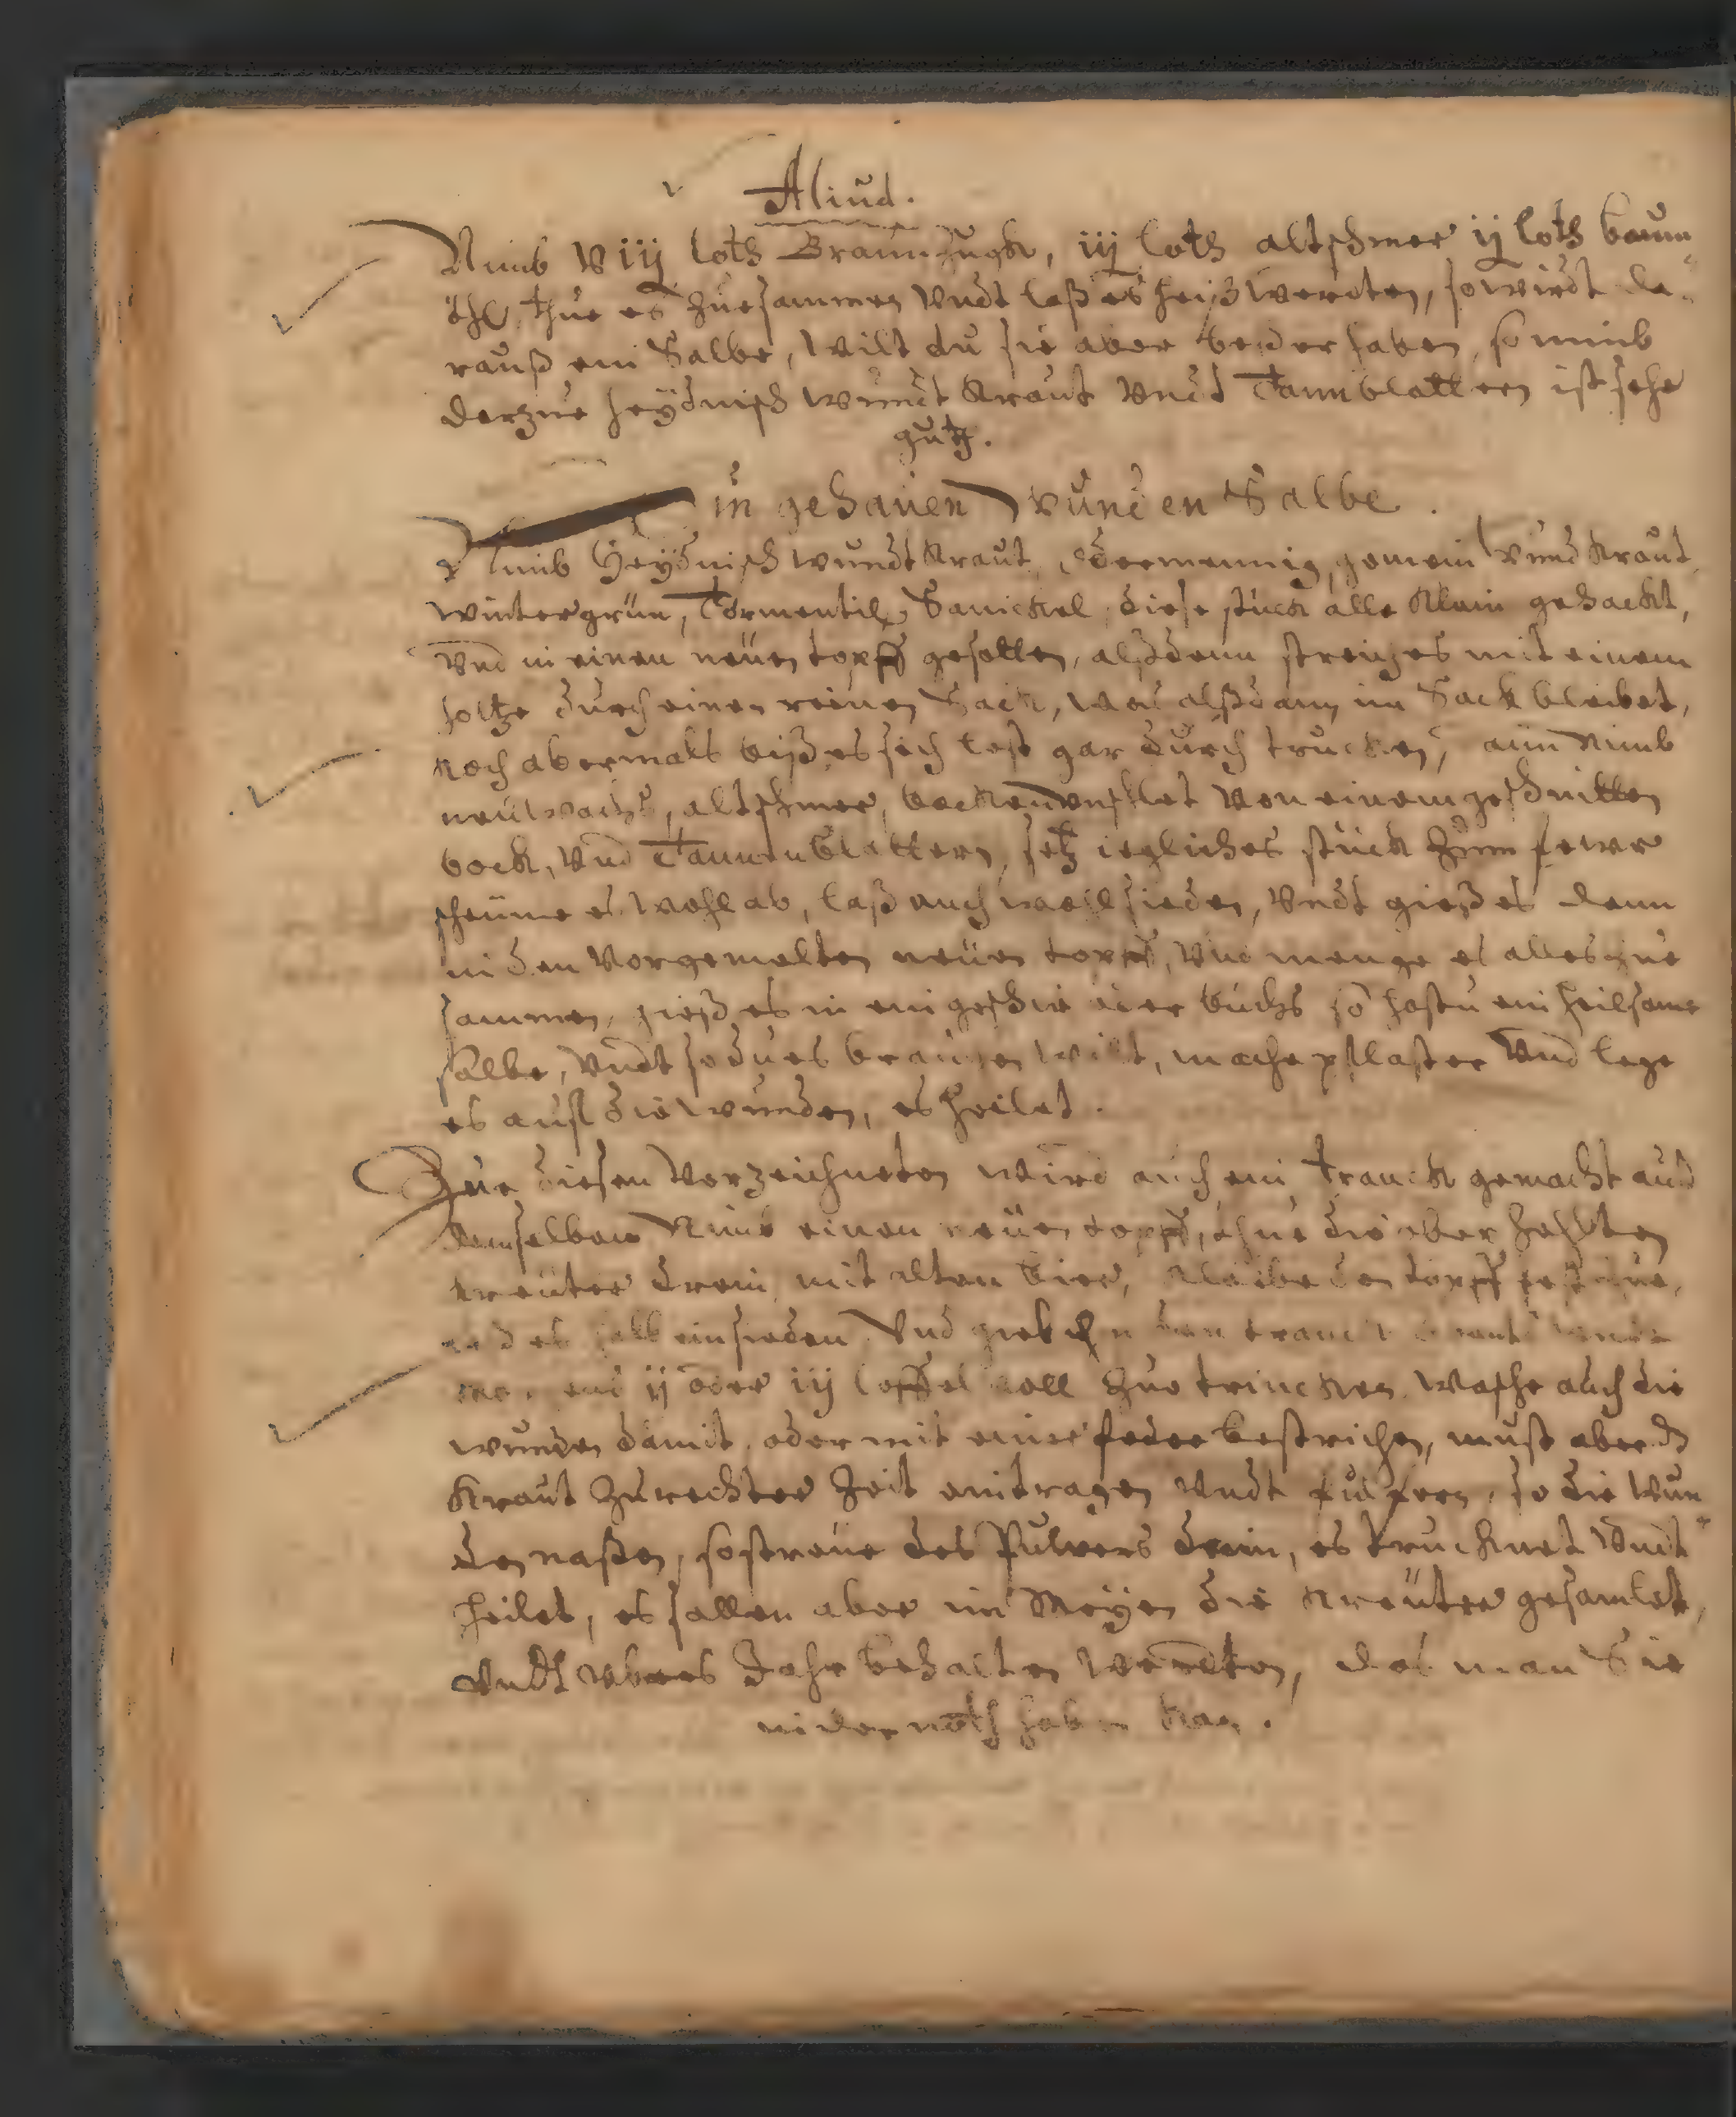 Aliud.
Nimb viij loth Braunsugk, iij loth altschmer ij loth baum
öhl, thue es zuesammen undt laß es heiß werdten, so wirdt da-
rauß ein Salbe, wilt du sie aber beßer haben, so nimb
darzue heÿdnisch wundt kraut undt Tannblatteren ist sehr
guth.
in gehauen Wunden Salbe.
Nimb Heÿdnisch wundtkraut, odermennig, gemein wundkraut,
wintergrün, Tormentil, Sanickel, diese stück alle klein gehackt,
und in einen neüen topff gesotten, alßdenn streich es mit einem
holtze durch einen reinen Sack, was alßdann im Sack bleibet,
koch abermals biß es sich lest gar durch trucken, nim
neu wachs, altschmer, bocken unschlet von einem geschnitten
bock, und Tannenblattern, setz iegliches stück zum fewr
scheüme es wohl ab, laß auch woell sieden, undt gieß es dann
in den vorgemelten neüen topff, und menge es alles zue
sammen, gieß es in ein geschir oder büchs so hastu ein heilsame
salbe, undt so du es brauchen wilt, mache pflaster und lege
es auff die wunden, es heilet.
Zue diesen verzeichneten wird auch ein tranck gemacht auß
demselben Nimb einen neüen topff, thue die ober
kreüter drein, mit alten bier, kleibe den topff fest zue,
halb einsieden und gieb den tranck
ij oder iij löffel voll zue trincken, wasche auch die
wunden damit, oder mit einer feder bestrichen, must aber ds
kraut zu rechter zeit eintragen undt pulfern, so die wun
den naßen, so streüe des Pulvers drein, es trucknet undt
heilet, es sollen aber im Meÿen die kreüter gesamlet,
undt ubers Jahr behalten werdten, das man Sie
in der noth haben kan.